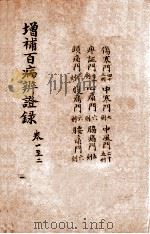 增補百病辨證錄
卷一至二
傷寒門 中寒門 中風門
痺証門 心痛門 脇痛門
頭痛門 腰痛門
一